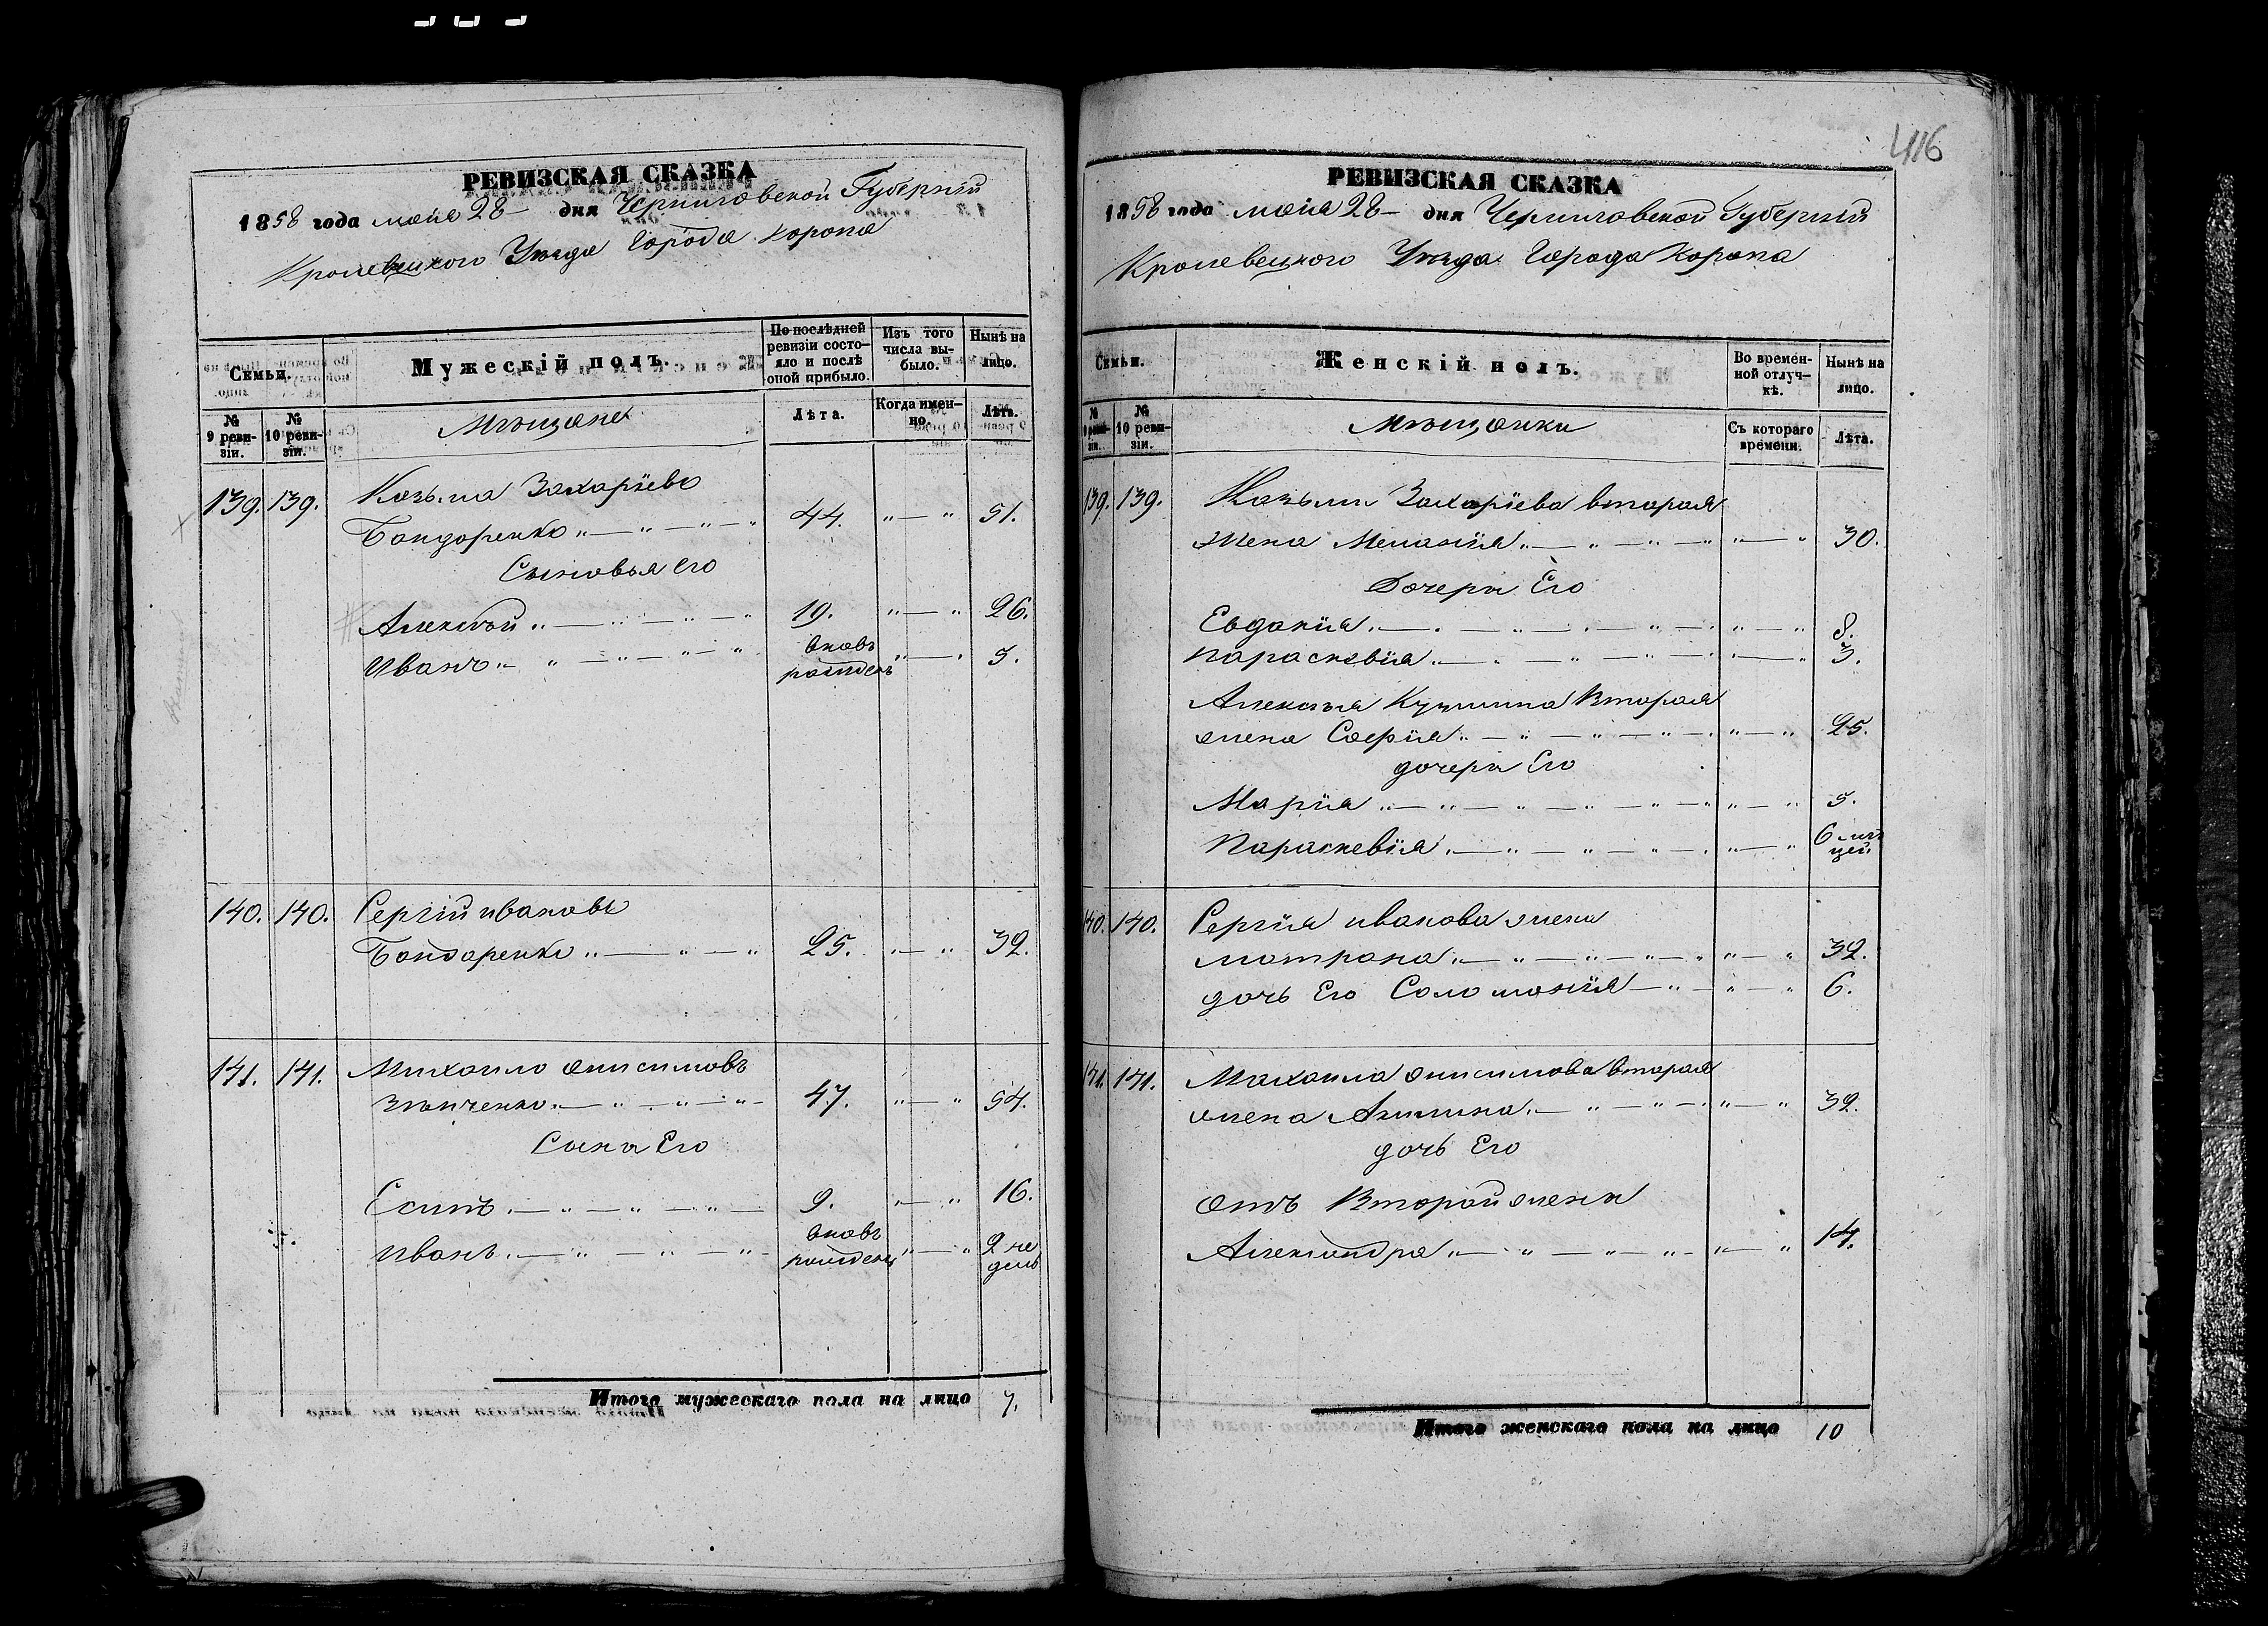 РЕВИЗСКАЯ СКАЗКА
1858 года мая 28 дня Черниговской Губерніи
Кролевецкого Уѣзда Города Коропа
Семьи.
Мужескій полъ.
По послѣдней ревизіи состояло и послѣ оной прибыло.
Изъ того числа выбыло.
Нынѣ на лицо.
№ 9 ревизіи.
№ 10 ревизіи.
Мѣщане
Лѣта.
Когда именно.
Лѣта.
139. 139. Козьма Захаріевъ
Бондаренко 44. 51.
Сыновья Его
Алексѣй 19. 26.
Иванъ вновь рожденъ 3.
140. 140. Сергій Ивановъ
Бондаренко 25. 32.
141. 141. Михаило Онисимовъ
47. 54.
Сыны Его
Есипъ 9. 16.
Иванъ вновь рожденъ 2 недель
Итого мужескаго пола на лицо 7.
416
РЕВИЗСКАЯ СКАЗКА
1858 года мая 28 дня Черниговской Губерніи
Кролевецкого Уѣзда Города Коропа
Семьи.
Женскій полъ.
Во временной отлучкѣ.
Нынѣ на лицо.
№ 9 ревизіи.
№ 10 ревизіи.
Мѣщанки
Съ котораго времени.
Лѣта.
139. 139. Козьмы Захаріева вторая
жена Меланія 30.
Дочери Его
Евдокія 8.
Параскевія 3.
Алексѣя Кузьмина Вторая
жена Софія 25.
дочери Его
Марія 5.
Параскевія 6 мѣсяцей
140. 140. Сергія Иванова жена
Матрона 32.
дочь Его Соломонія 6.
141. 141. Михаила Онисимова вторая
жена Акилина 32.
дочь Его
отъ Второй жены
Александра 14.
Итого женскаго пола на лицо 10